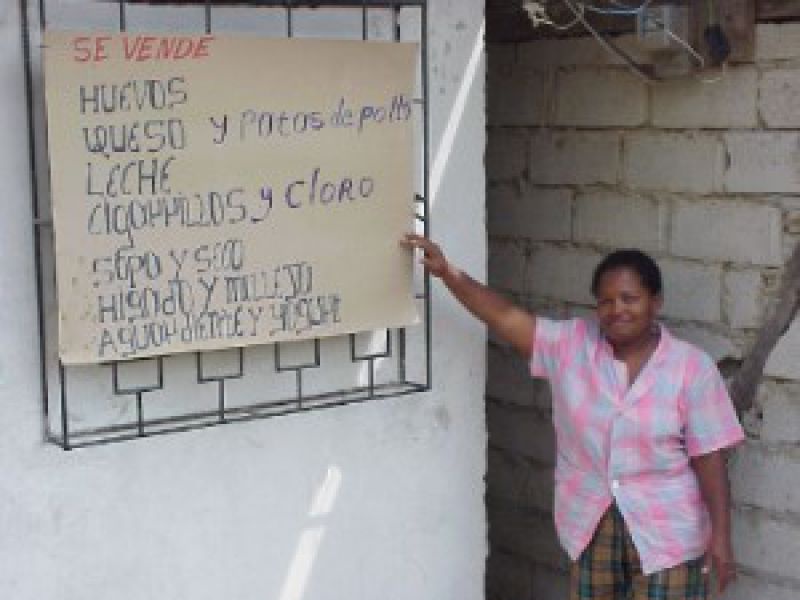 SE VENDE
HUEVOS
QUESO y Patas de pollo
LECHE
CIGARRILLOS y Cloro
SOPA Y SECO
HIGADO Y MOLLEJA
AGUARDIENTE Y YOGURT